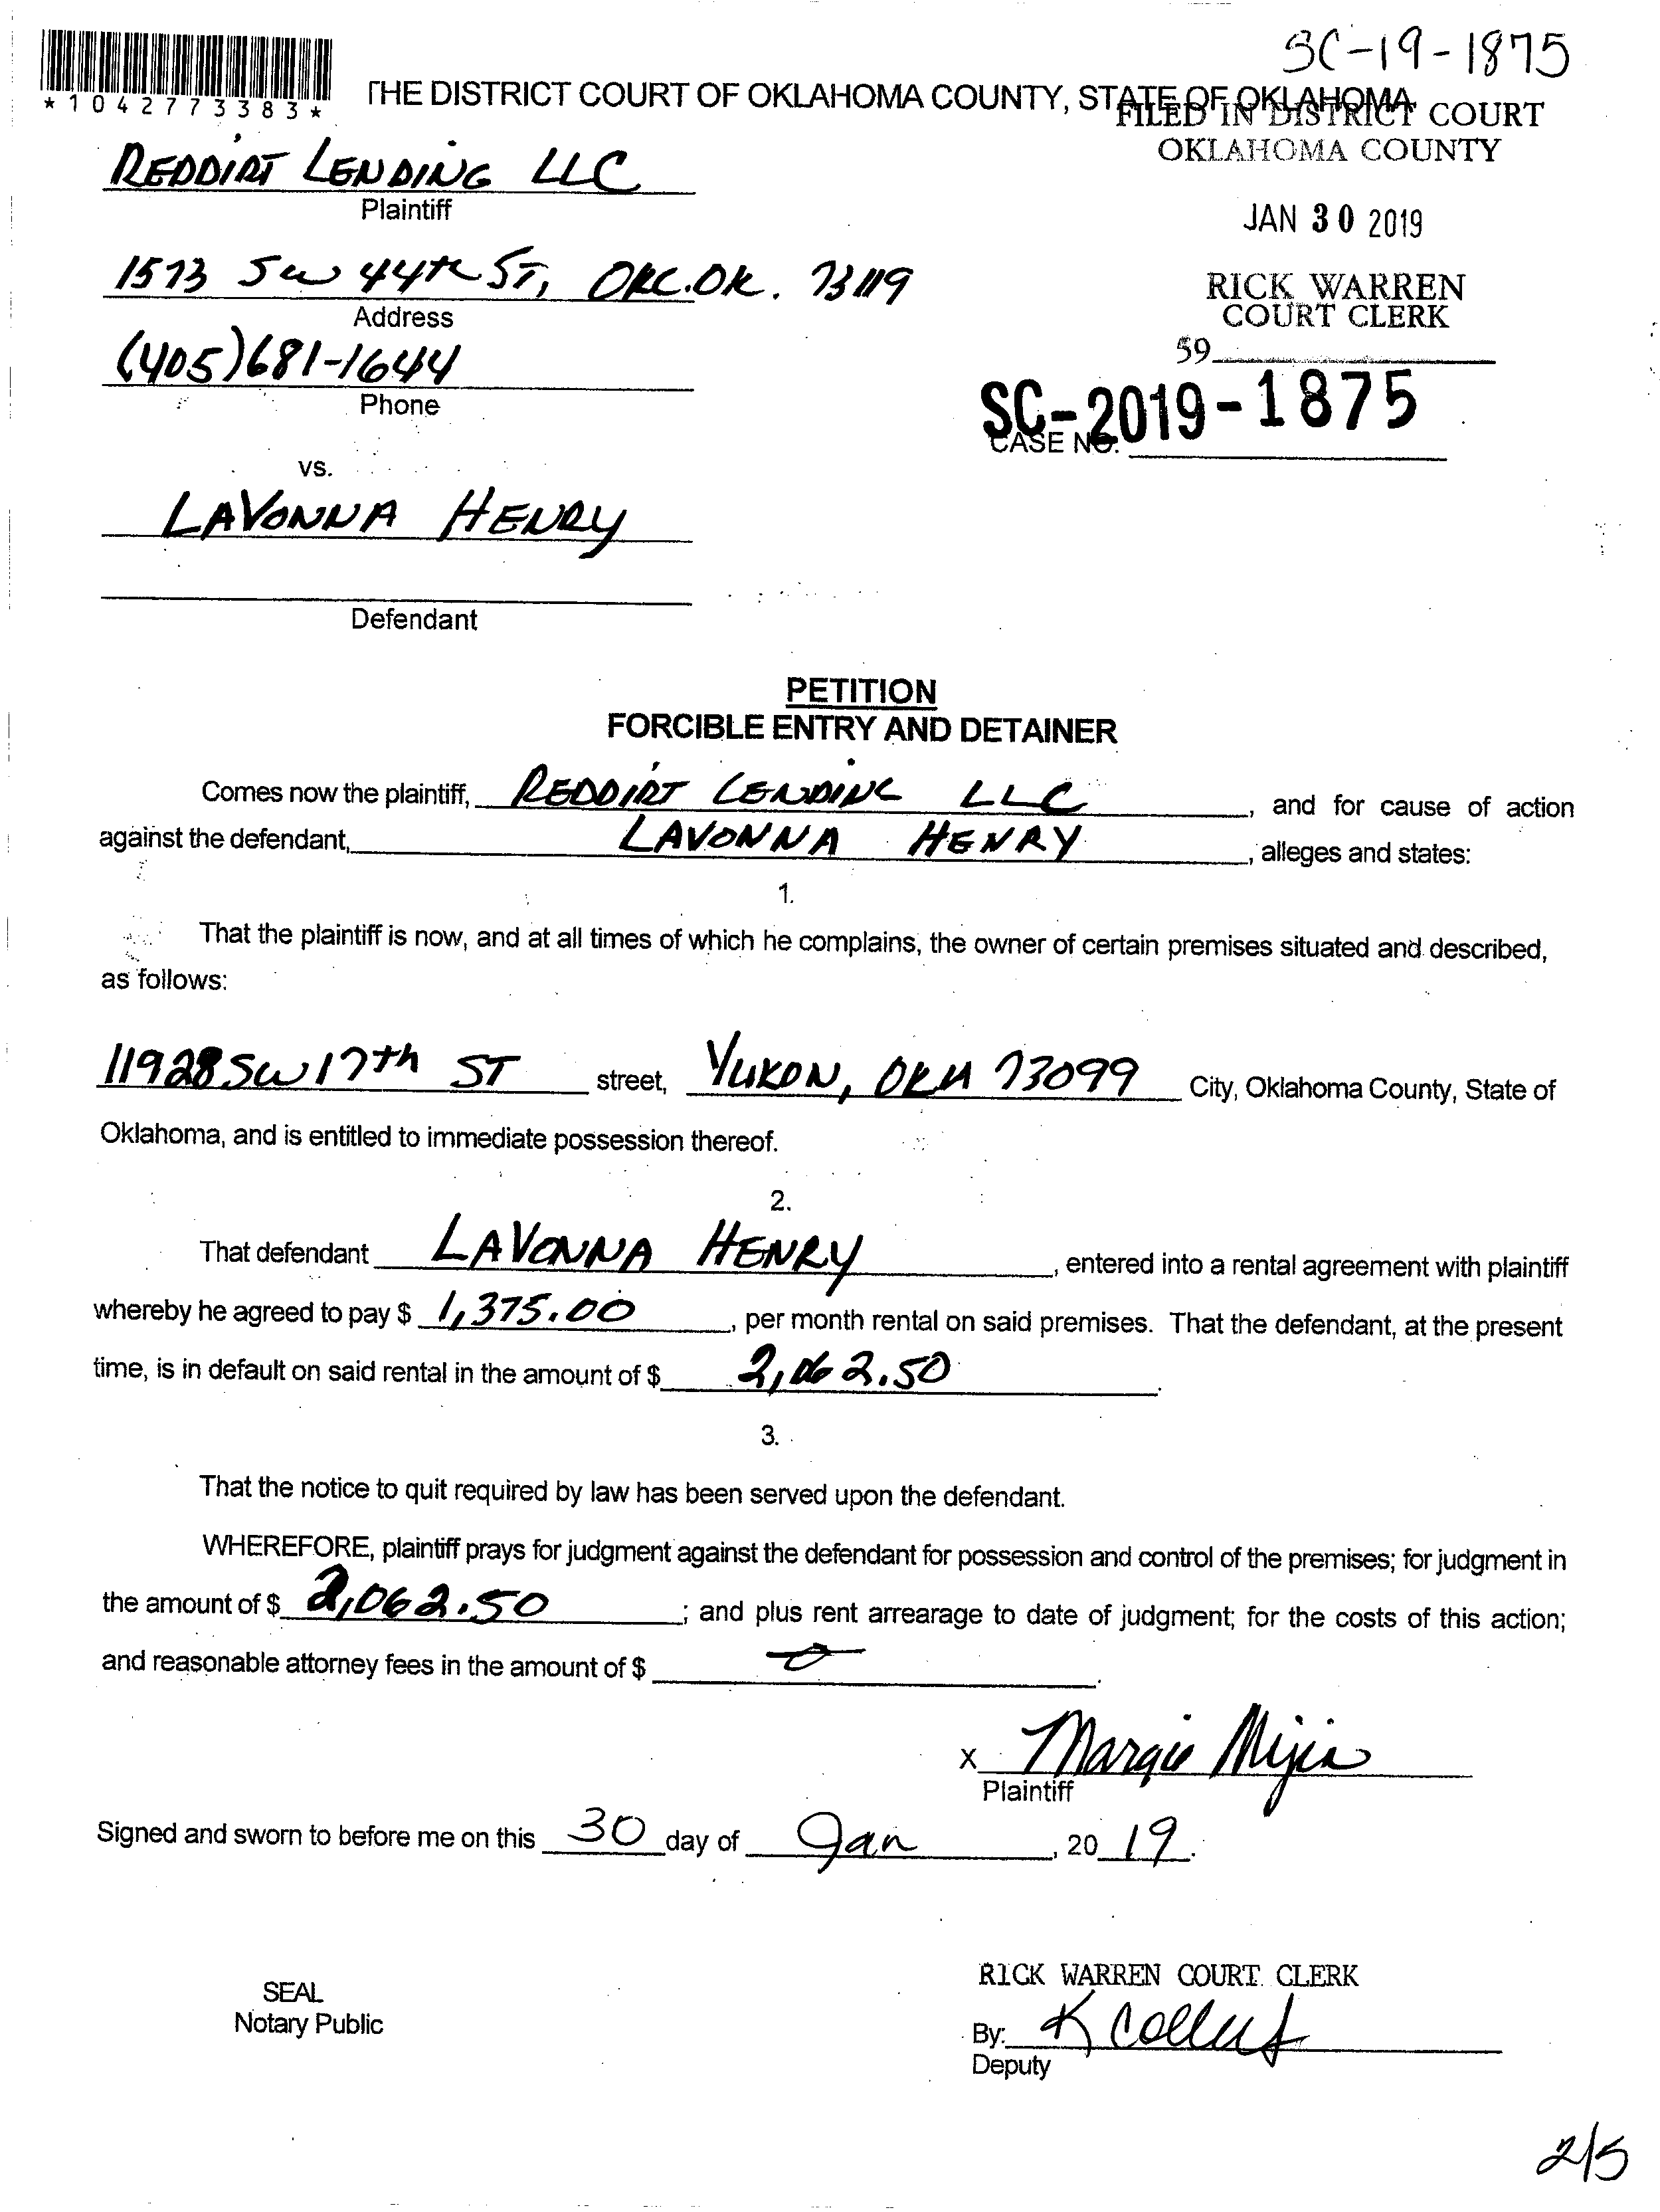 SC-19-1875
*1042773383*
THE DISTRICT COURT OF OKLAHOMA COUNTY, STATE OF OKLAHOMA
FILED IN DISTRICT COURT
OKLAHOMA COUNTY
REDDIRT LENDING LLC
Plaintiff
JAN 30 2019
1573 SW 44th ST, OKC. OK. 73119
Address
RICK WARREN
COURT CLERK
(405)681-1644
Phone
59
SC-2019-1875
CASE NO.
vs.
LAVONNA HENRY
Defendant
PETITION
FORCIBLE ENTRY AND DETAINER
Comes now the plaintiff, REDDIRT LENDING LLC, and for cause of action
against the defendant, LAVONNA HENRY, alleges and states:
1.
That the plaintiff is now, and at all times of which he complains, the owner of certain premises situated and described,
as follows:
11928 SW 17th ST street, YUKON, OKLA 73099 City, Oklahoma County, State of
Oklahoma, and is entitled to immediate possession thereof.
2.
That defendant LAVONNA HENRY, entered into a rental agreement with plaintiff
whereby he agreed to pay $ 1,375.00, per month rental on said premises. That the defendant, at the present
time, is in default on said rental in the amount of $ 2,062.50.
3.
That the notice to quit required by law has been served upon the defendant.
WHEREFORE, plaintiff prays for judgment against the defendant for possession and control of the premises; for judgment in
the amount of $ 2,062.50; and plus rent arrearage to date of judgment; for the costs of this action;
and reasonable attorney fees in the amount of $ 0.
x Margie Mijia
Plaintiff
Signed and sworn to before me on this 30 day of Jan, 2019.
RICK WARREN COURT CLERK
SEAL
Notary Public
By: K
Deputy
2/5